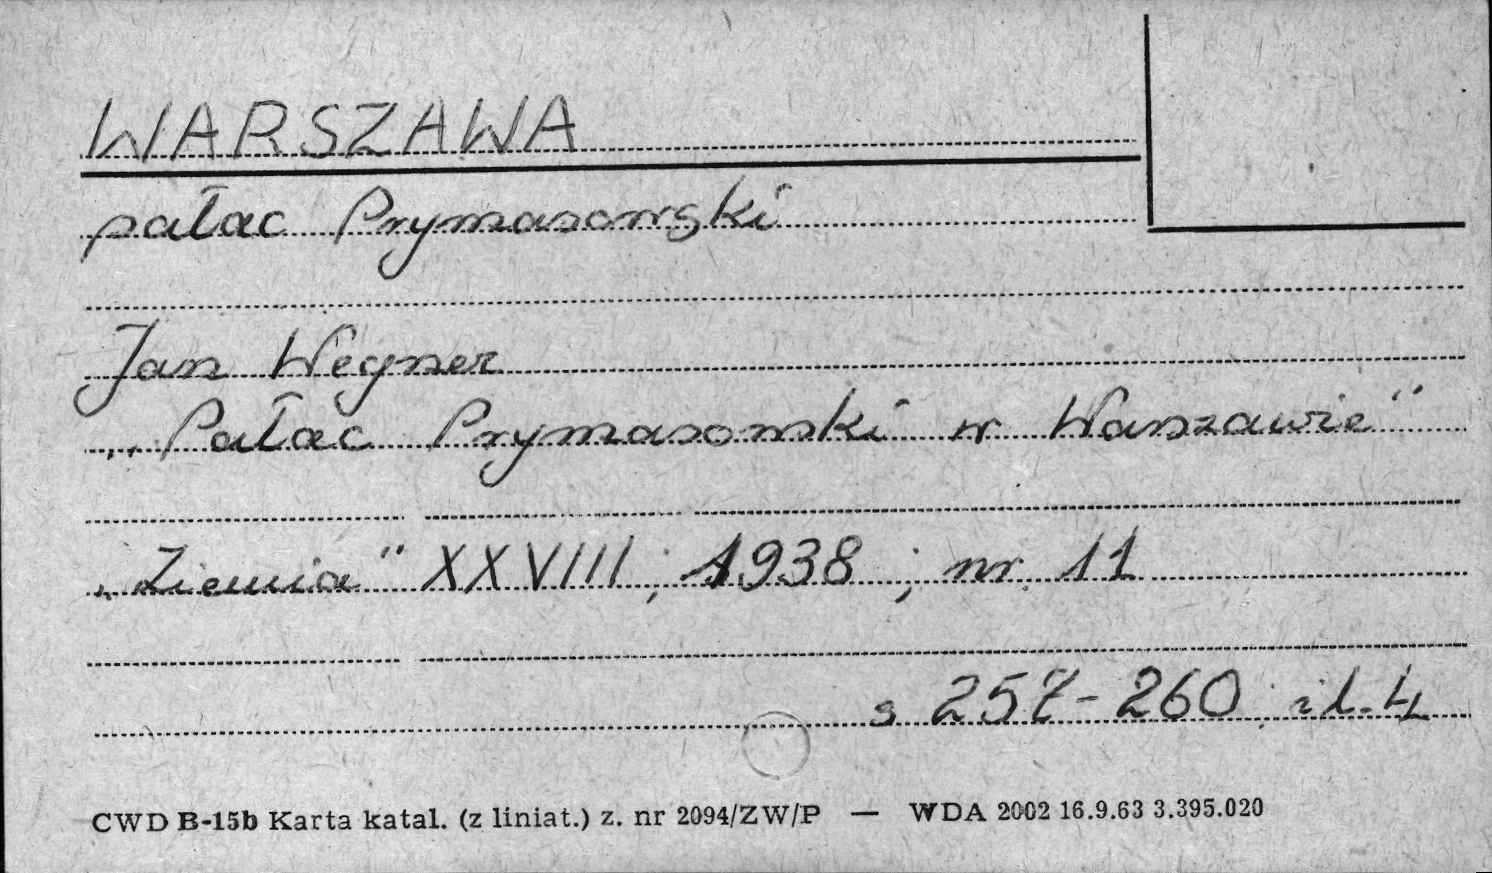 WARSZAWA
pałac Prymasowski
Jan Wegner
„Pałac Prymasowski w Warszawie"
„Ziemia" XXVIII; 1938; nr. 11
s 257-260; il. 4
CWD B-15b Karta katal. (z liniat.) z. nr 2094/ZW/P — WDA 2002 16.9.63 3.395.020